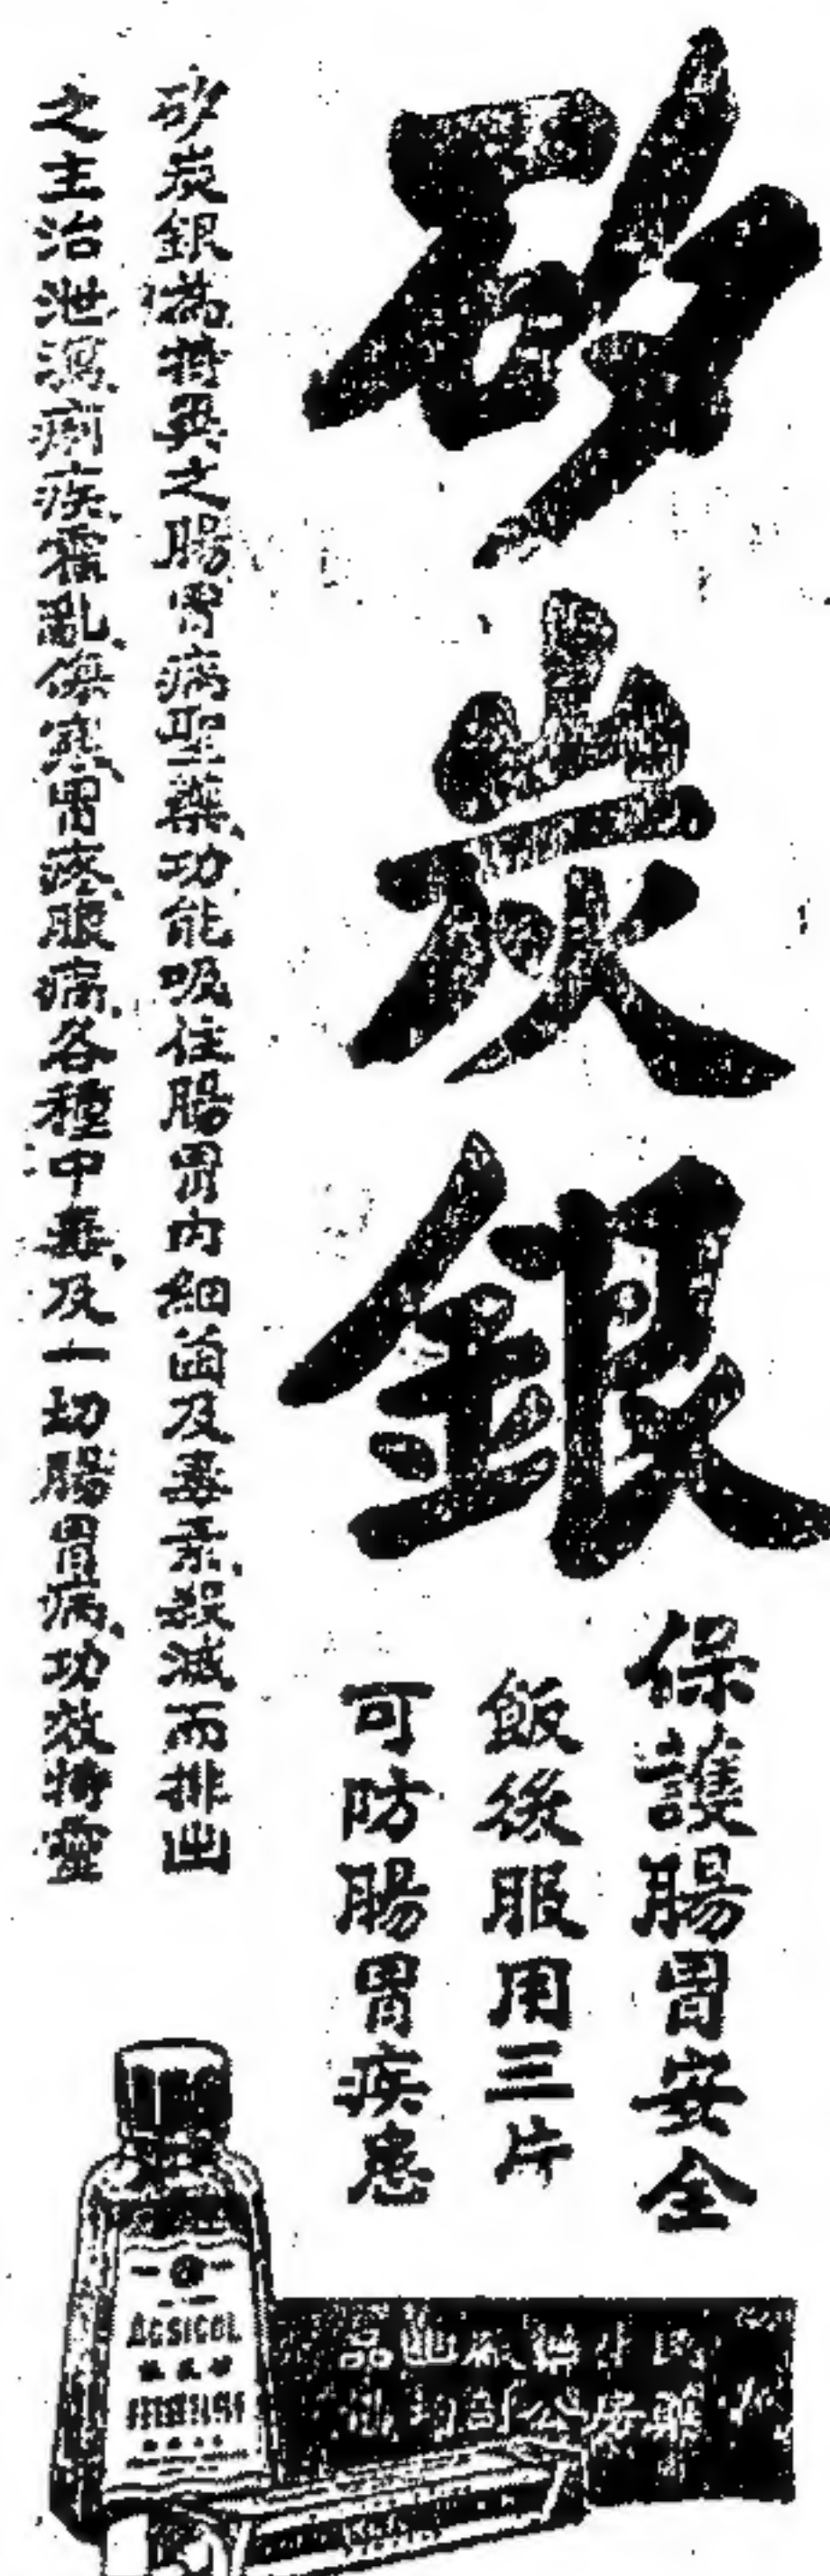 矽炭銀
保護腸胃安全
飯後服用三片
可防腸胃疾患
矽炭銀為特異之腸胃病聖藥、功能吸住腸胃內細菌及毒素、殺滅而排出
之主治泄瀉、痢疾、霍亂、傷寒、胃疼、腹痛、各種中毒、及一切腸胃病、功效特靈